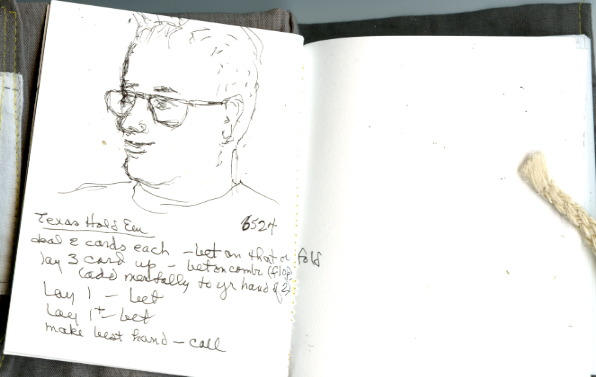 Texas Hold Em
6524
deal 2 cards each - bet on that or fold
lay 3 card up - bet on comb. (flop)
(add mentally to yr hand of 2)
Lay 1 - bet
Lay 1 - bet
make best hand - call